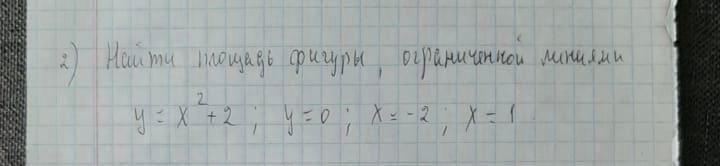 2) Найти площадь фигуры, ограниченной линиями
y = x² + 2 ; y = 0 ; x = -2 ; x = 1